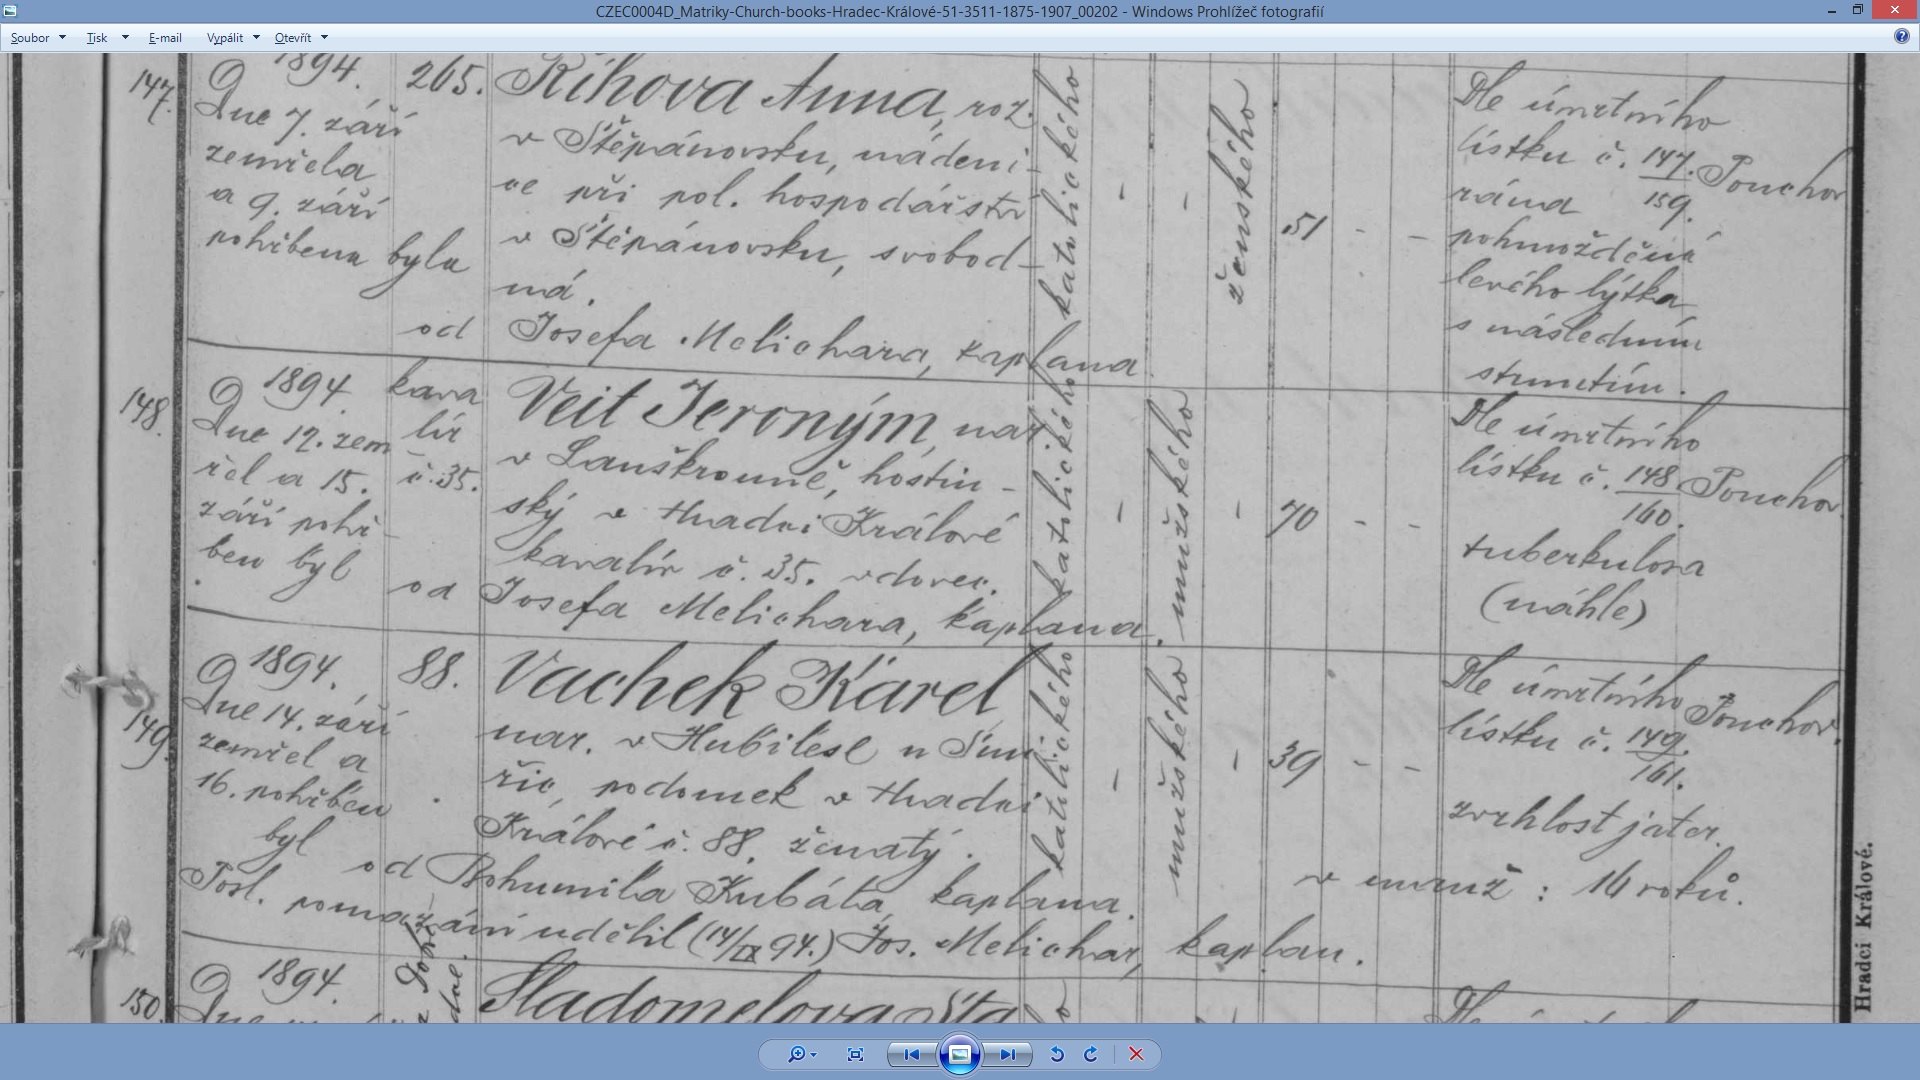 CZEC0004D_Matriky-Church-books-Hradec-Králové-51-3511-1875-1907_00202 - Windows Prohlížeč fotografií
Soubor Tisk E-mail Vypálit Otevřít
147.
1894.
Dne 7. září
zemřela
a 9. září
pohřbena byla
265.
Říhova Anna, roz.
v Štěpánovsku, nádeni-
ce při pol. hospodářství
v Štěpánovsku, svobod-
ná.
od Josefa Melichara, kaplana.
katolického
ženského
51
Dle úmrtního
lístku č. 147./159.
Pouchov
pohmoždění
levého lýtka
s následním
148.
1894.
Dne 12. zem
řel a 15.
září pohř-
ben byl
kava
lír
č. 35.
Veit Jeroným, nar.
v Lanškrouně, hostin-
ský v Hradci Králové
kavalír č. 35. vdovec.
od Josefa Melichara, kaplana.
katolického
mužského
70
Dle úmrtního
lístku č. 148/160.
Pouchov.
tuberkulosa
(náhle)
149.
1894.
Dne 14. září
zemřel a
16. pohřben
byl
88.
Vachek Karel
nar. v u Smi
řic, podomek v Hradci
Králové č. 88, ženatý.
od Bohumila Kubáta, kaplana.
katolického
mužského
39
Dle úmrtního
lístku č. 149./161.
Pouchov.
zvrhlost jater.
v manž : 14 roků.
Posl. pomazání udělil (14/IX 94.) Jos. Melichar, kaplan.
150.
1894.
Hradci Králové.